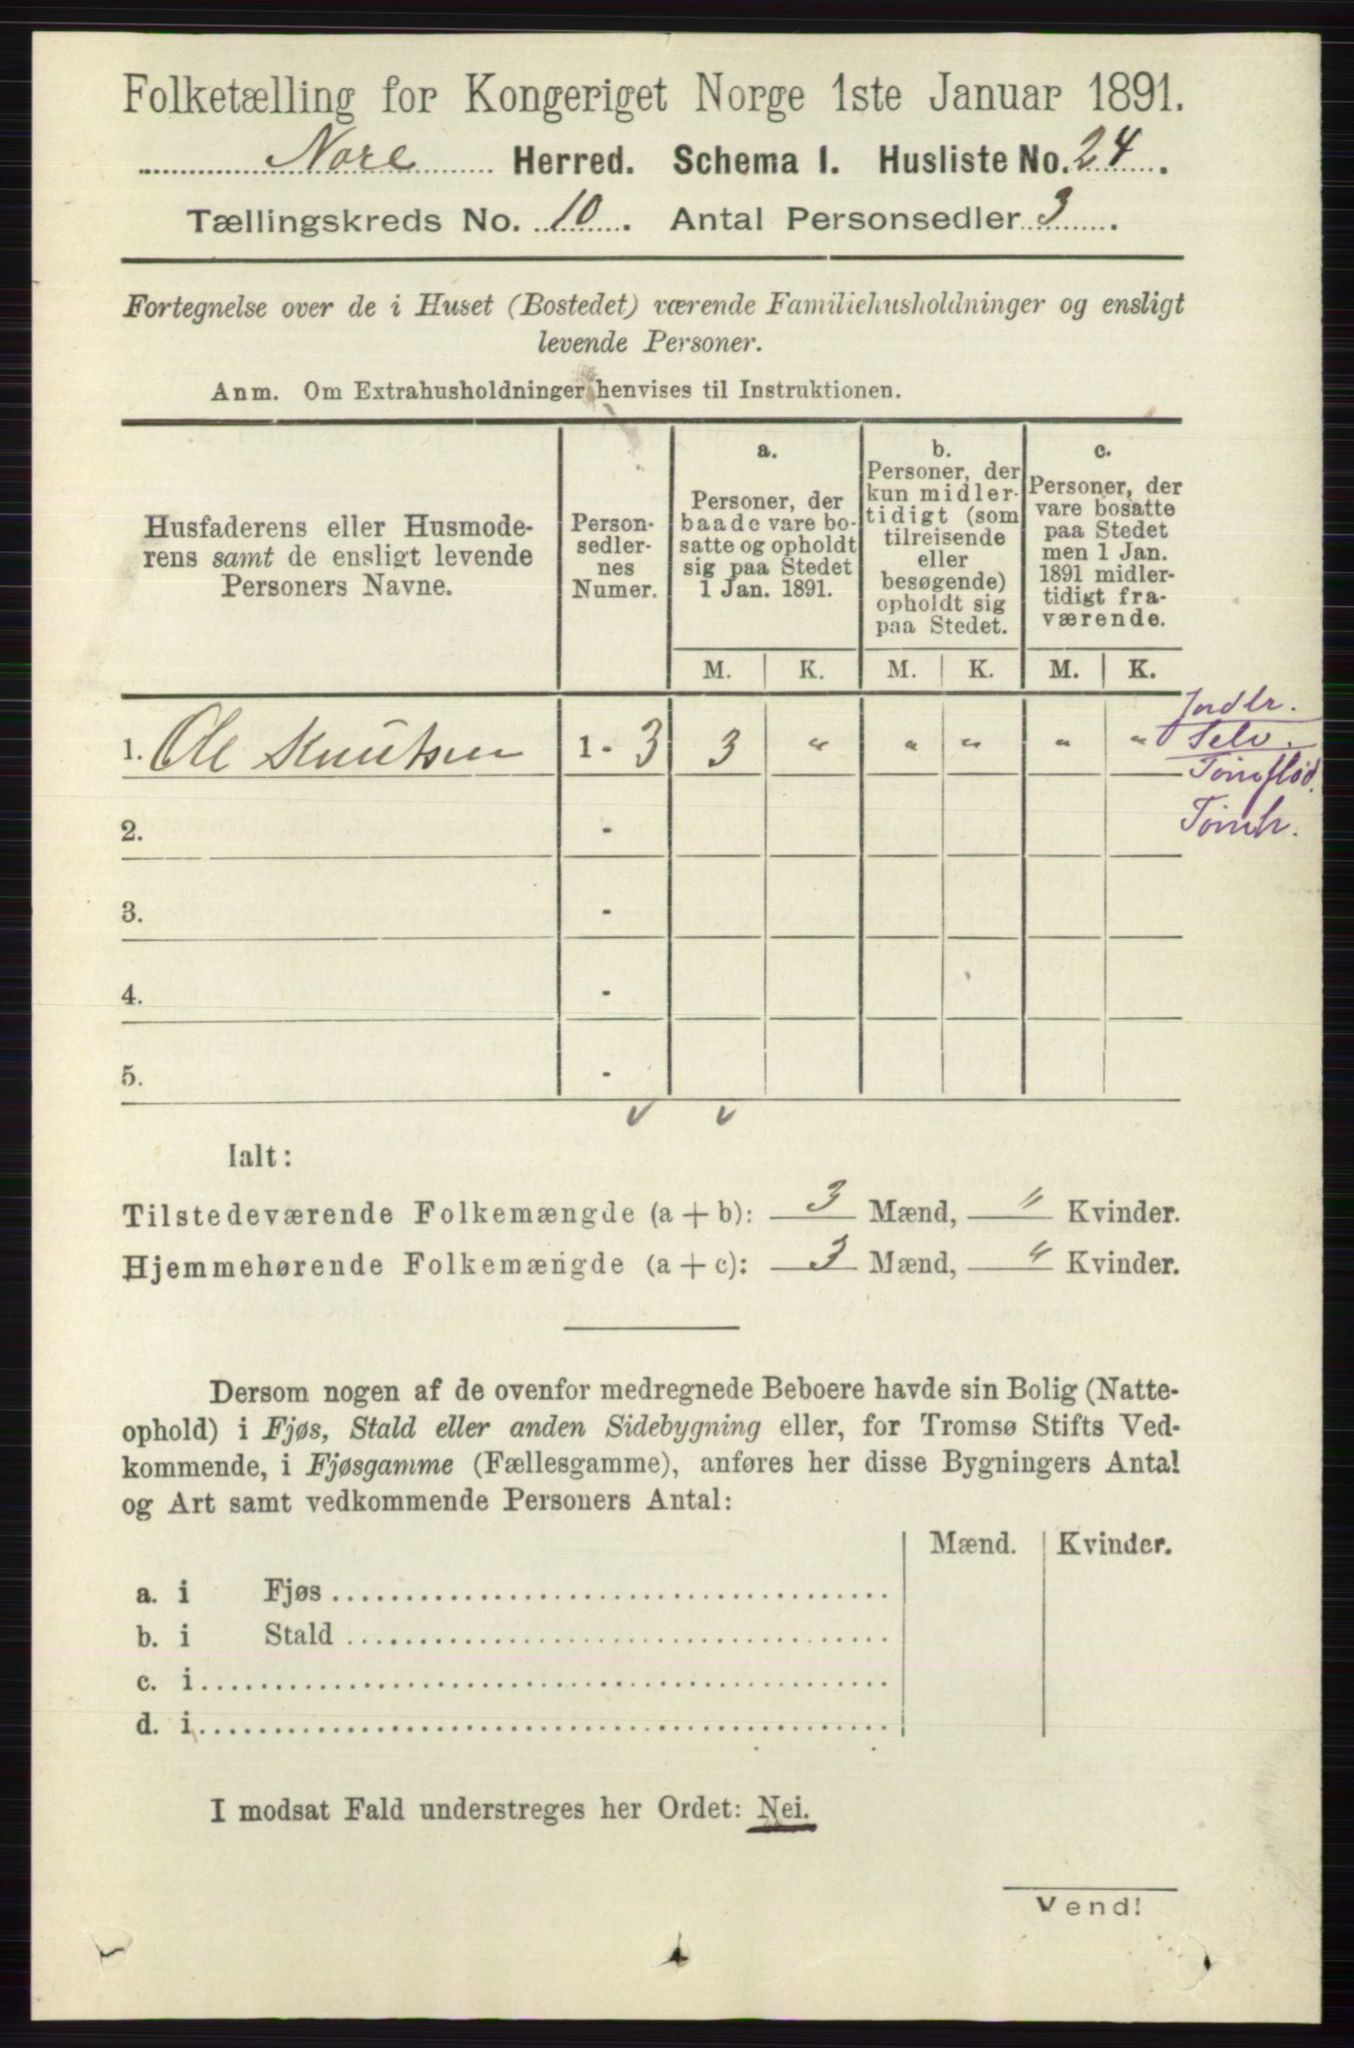 Folketælling for Kongeriget Norge 1ste Januar 1891.
Nore Herred. Schema I. Husliste No. 24.
Tællingskreds No. 10. Antal Personsedler 3.
Fortegnelse over de i Huset (Bostedet) værende Familiehusholdninger og ensligt
levende Personer.
Anm. Om Extrahusholdninger henvises til Instruktionen.
Husfaderens eller Husmode-
rens samt de ensligt levende
Personers Navne.
Person-
sedler-
nes
Numer.
a.
Personer, der
baade vare bo-
satte og opholdt
sig paa Stedet
1 Jan. 1891.
b.
Personer, der
kun midler-
tidigt (som
tilreisende
eller
besøgende)
opholdt sig
paa Stedet.
c.
Personer, der
vare bosatte
paa Stedet
men 1 Jan.
1891 midler-
tidigt fra-
værende.
M. K. M. K. M. K.
Jordbr.
1. Ole Knutsen 1 - 3 3 " " " " " Selv.
Tømflød.
2. - Tømh.
3. -
4. -
5. -
Ialt:
Tilstedeværende Folkemængde (a + b): 3 Mænd, " Kvinder.
Hjemmehørende Folkemængde (a + c): 3 Mænd, " Kvinder.
Dersom nogen af de ovenfor medregnede Beboere havde sin Bolig (Natte-
ophold) i Fjøs, Stald eller anden Sidebygning eller, for Tromsø Stifts Ved-
kommende, i Fjøsgamme (Fællesgamme), anføres her disse Bygningers Antal
og Art samt vedkommende Personers Antal:
Mænd. Kvinder.
a. i Fjøs
b. i Stald
c. i
d. i
I modsat Fald understreges her Ordet: Nei.
Vend!